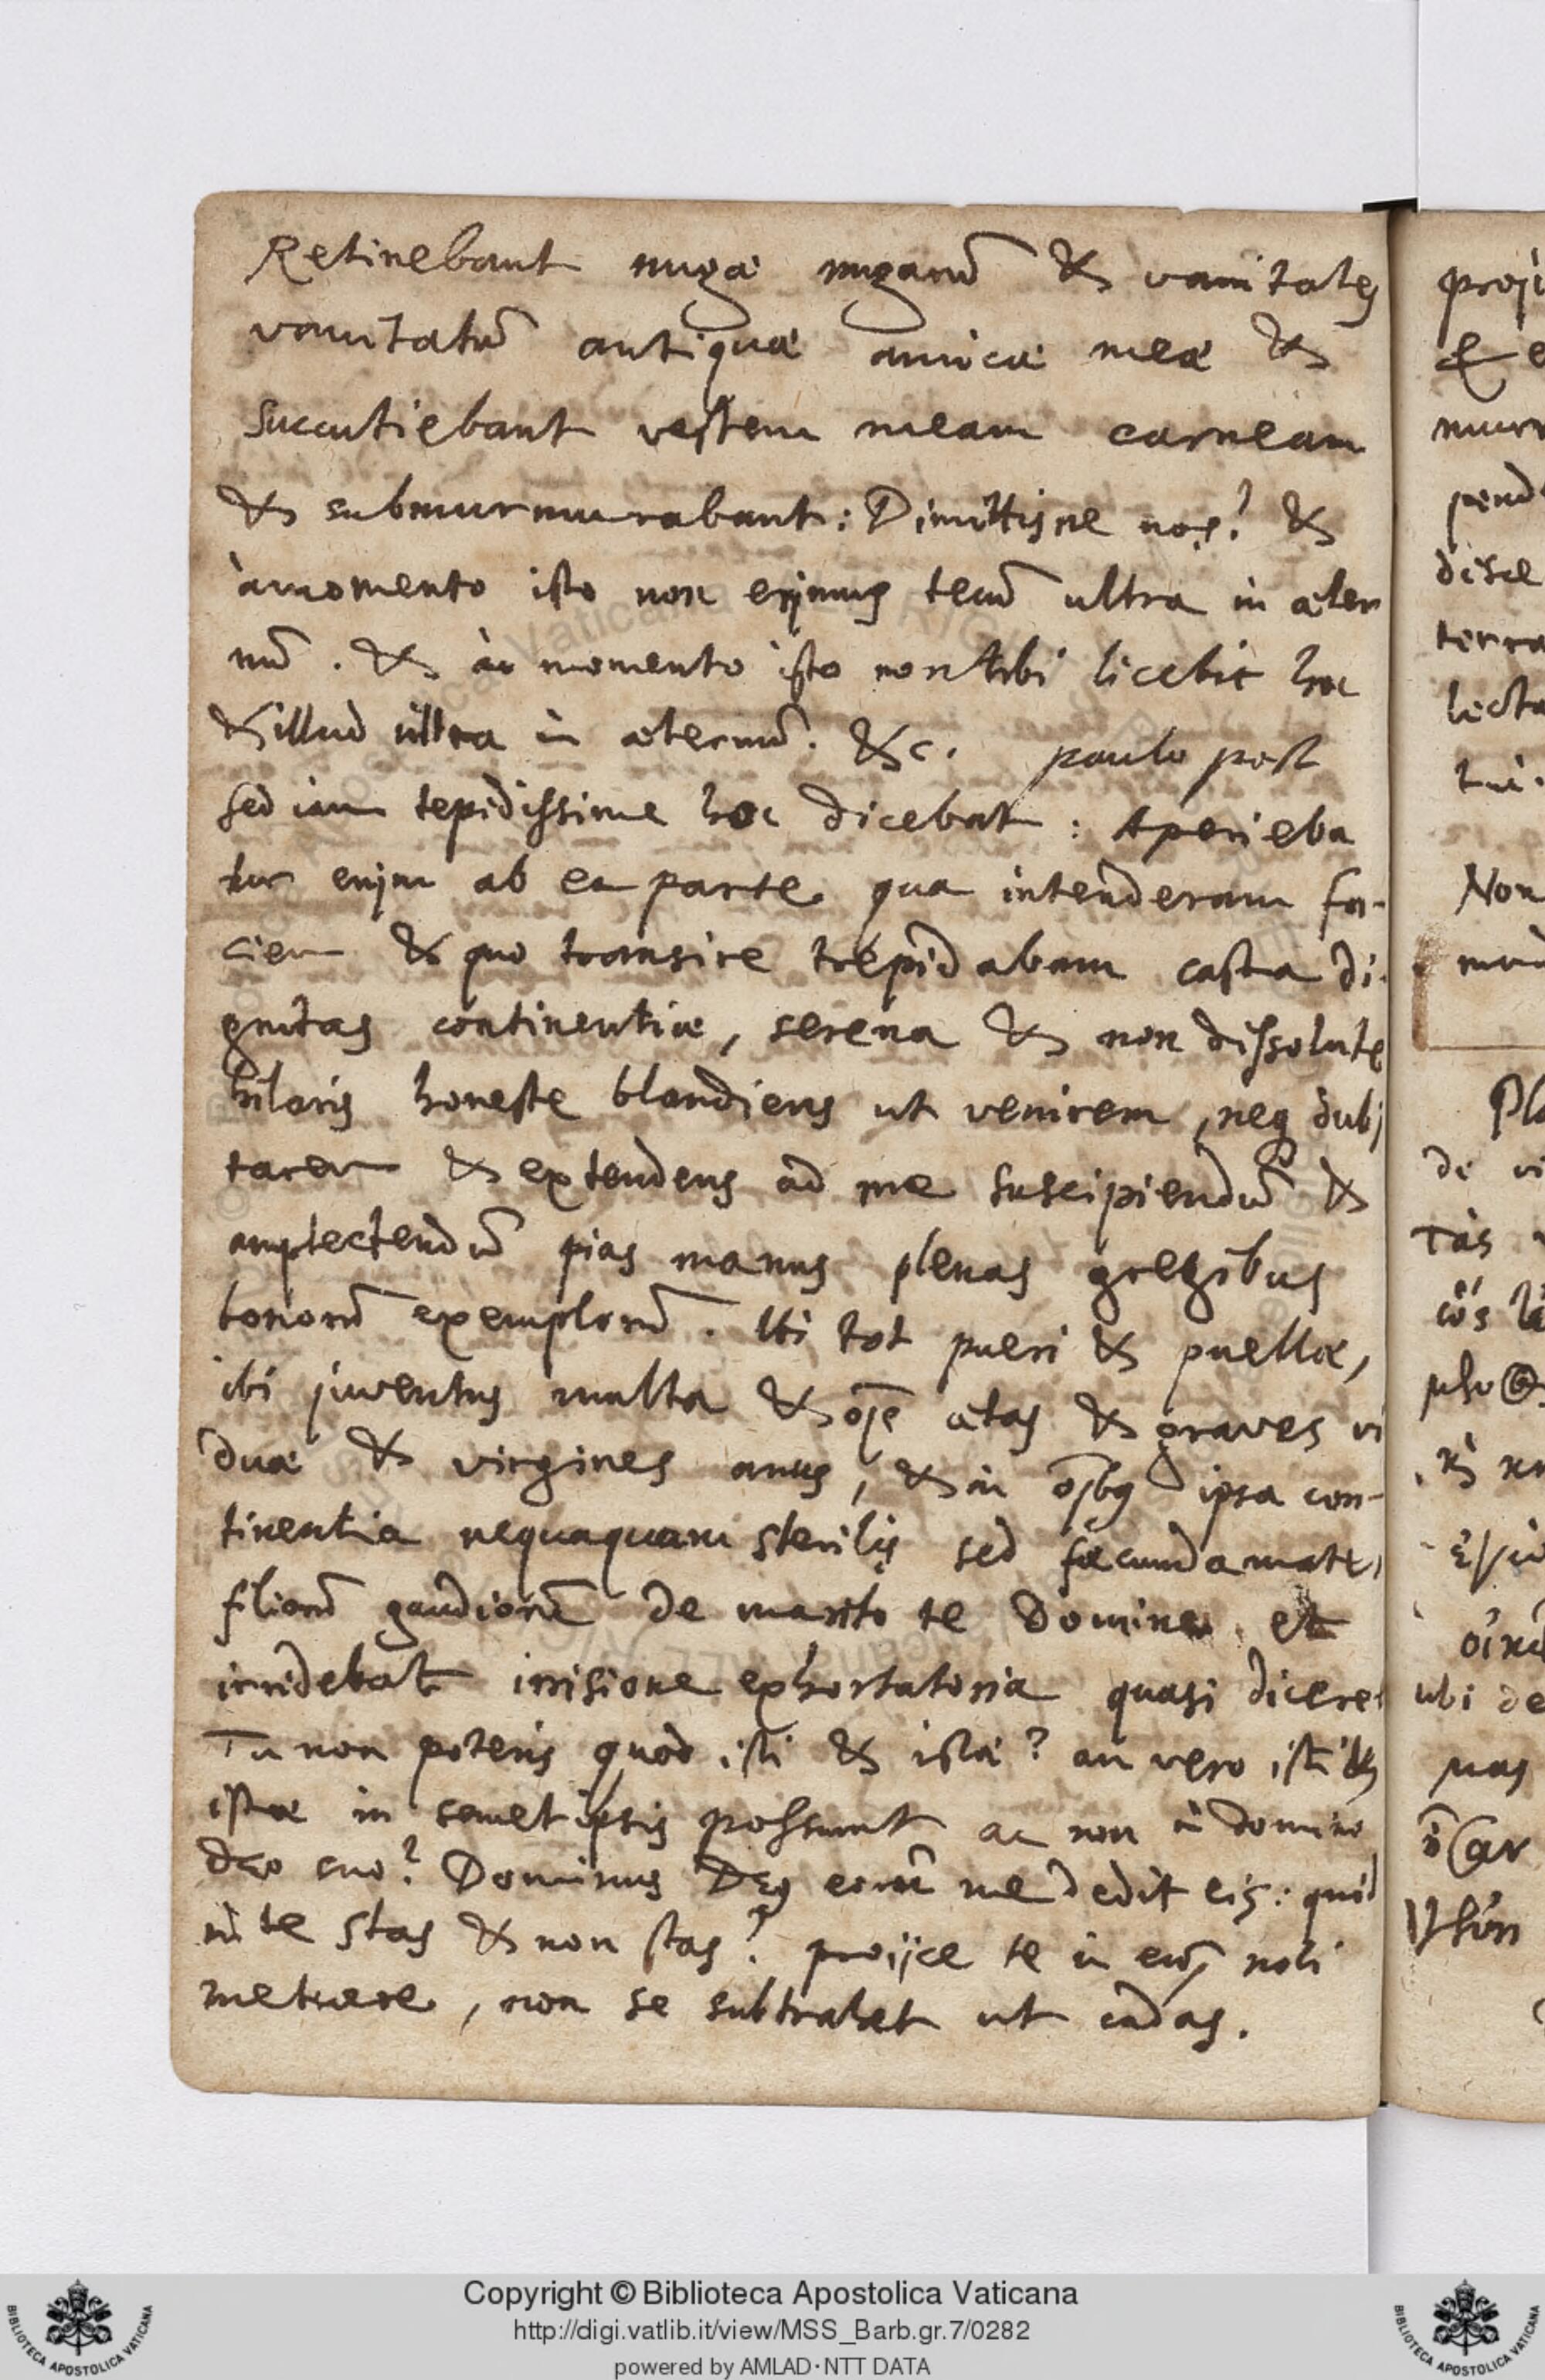 Retinebant nugæ nugarũ & vanitates
vanitatũ antiquæ amicæ meæ &
succutiebant vestem meam carneam
& submurmurabant: Dimittisne nos? &
à momento isto non erimus tecũ ultra in æter
nũ. & à momento isto non tibi licebit hoc
& illud ultra in æternũ. &c. paulo post
sed iam tepidissime hoc dicebat: Aperieba
tur enim ab ea parte qua intenderam fa-
ciem & quo transire trepidabam casta di-
gnitas continentiæ, serena & non dissolute
hilaris honeste blandiens ut venirem, neq dubi
tarem & extendens ad me suscipiendũ &
amplectendũ pias manus plenas gregibus
bonorũ exemplorũ. Ibi tot pueri & puellæ,
ibi juventus multa & oĩs ætas & graves vi
duæ & virgines anus, & in oĩbg ipsa con-
tinentia nequaquam sterilis sed fæcunda mater
filiorũ gaudiorũ de marito te Domine. et
irridebat irrisione exhortatoria quasi diceret
Tu non poteris quod isti & istæ? an vero isti &
istæ in semetipsis possunt ac non in domino
deo suo? Dominus Deg eorũ me dedit eis: quid
in te stas & non stas? proijce te in eũ noli
metuere, non se subtrahet ut cadas.
proji
& e
murm
pend
disce
terra
lecta
tuè.
Non
mu
Pla
de vi
τὰς
ubi de
mas
Copyright © Biblioteca Apostolica Vaticana
http://digi.vatlib.it/view/MSS_Barb.gr.7/0282
powered by AMLAD·NTT DATA
BIBLIOTECA APOSTOLICA VATICANA
BIBLIOTECA APOSTOLICA VATICANA